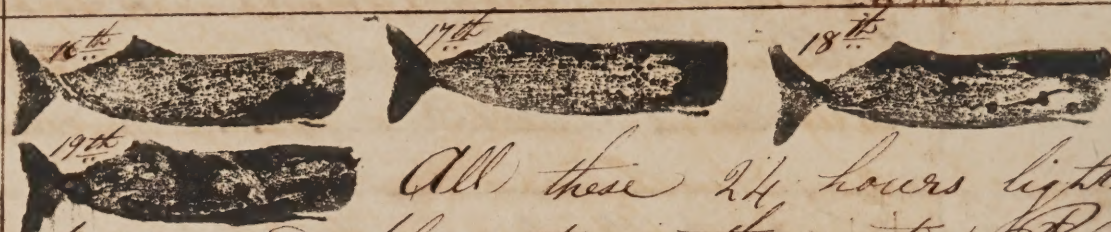 16th 17th 18th
19th All these 24 hours light